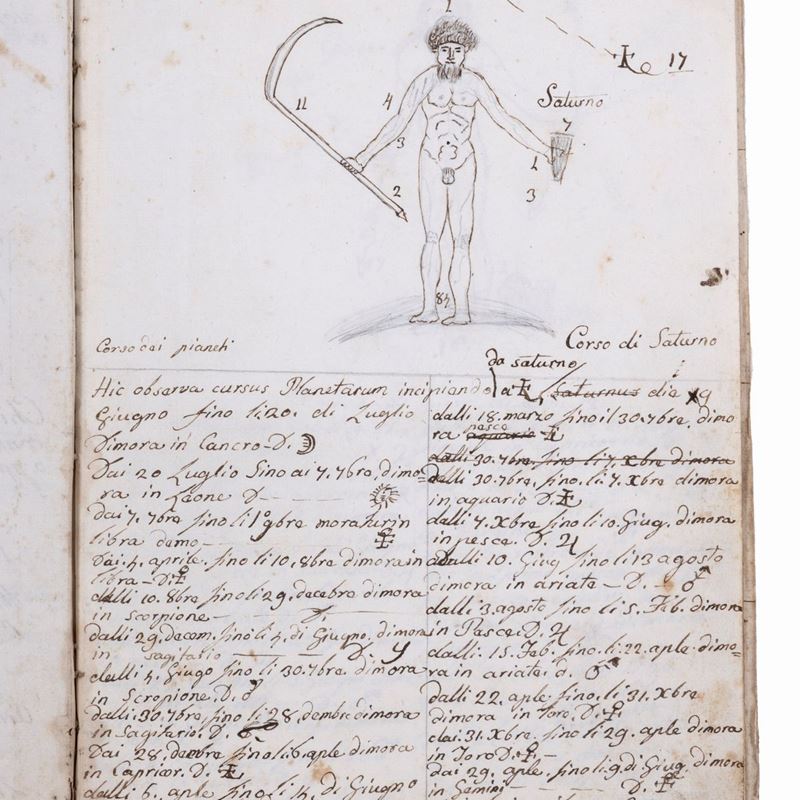 1
17
11
4
Saturno
7
3
3
1
2
3
84
Corso dei pianeti
Corso di Saturno
da saturno
Hic observa cursus Planetarum incipiendo a saturnus die 19
Giugno fino li 20. di Luglio
Dimora in Cancro-D.
Dai 20 Luglio Sino ai 7. 7bre, dimo=
ra in Leone D
dai 7. 7bre fino li 1° 9bre moratur in
libra demo
Dai. 4. aprile. fino li 10, 8bre dimora in
libra-D.
dalli 10. 8bre fino li 29. decebre dimora
in scorpione
dalli 29. decem. fino li 4. di Giugno. dimora
in sagitario D. 4
dalli 4. Giugo fino li 30. 7bre. dimora
in Scropione. D.
dalli. 30. 7bre, fino li 28, dembre dimora
in Sagitario. D.
Dai 28. dembre fino li 6. aple dimora
in Capricor. D.
dalli 6. aple fino li 14. di Giugno
dalli 18. marzo fino il 30. 7bre, dimo
ra pesce aquario
dalli 30. 7bre, fino li 7. Xbre dimora
dalli 30. 7bre, fino li 7. Xbre dimora
in aquario D.
dalli 7. Xbre fino li 10. Giug. dimora
in pesce. D. ♃
dalli 10. Giug fino li 13 agosto
dimora in ariate - D. - ♂
dalli 3. agosto fino li 5. Feb. dimora
in Pasce. D. ♃
dalli. 15. Feb. fino. li. 22. aple. dimo=
ra in ariate. d. ♂
dalli 22. aple fino. li 31. Xbre
dimora in Toro. D.
dai. 31. Xbre. fino li 29. aple dimora
in Toro D.
dai 29. aple. fino li. 9. di Giug. dimora
in Gemini D.